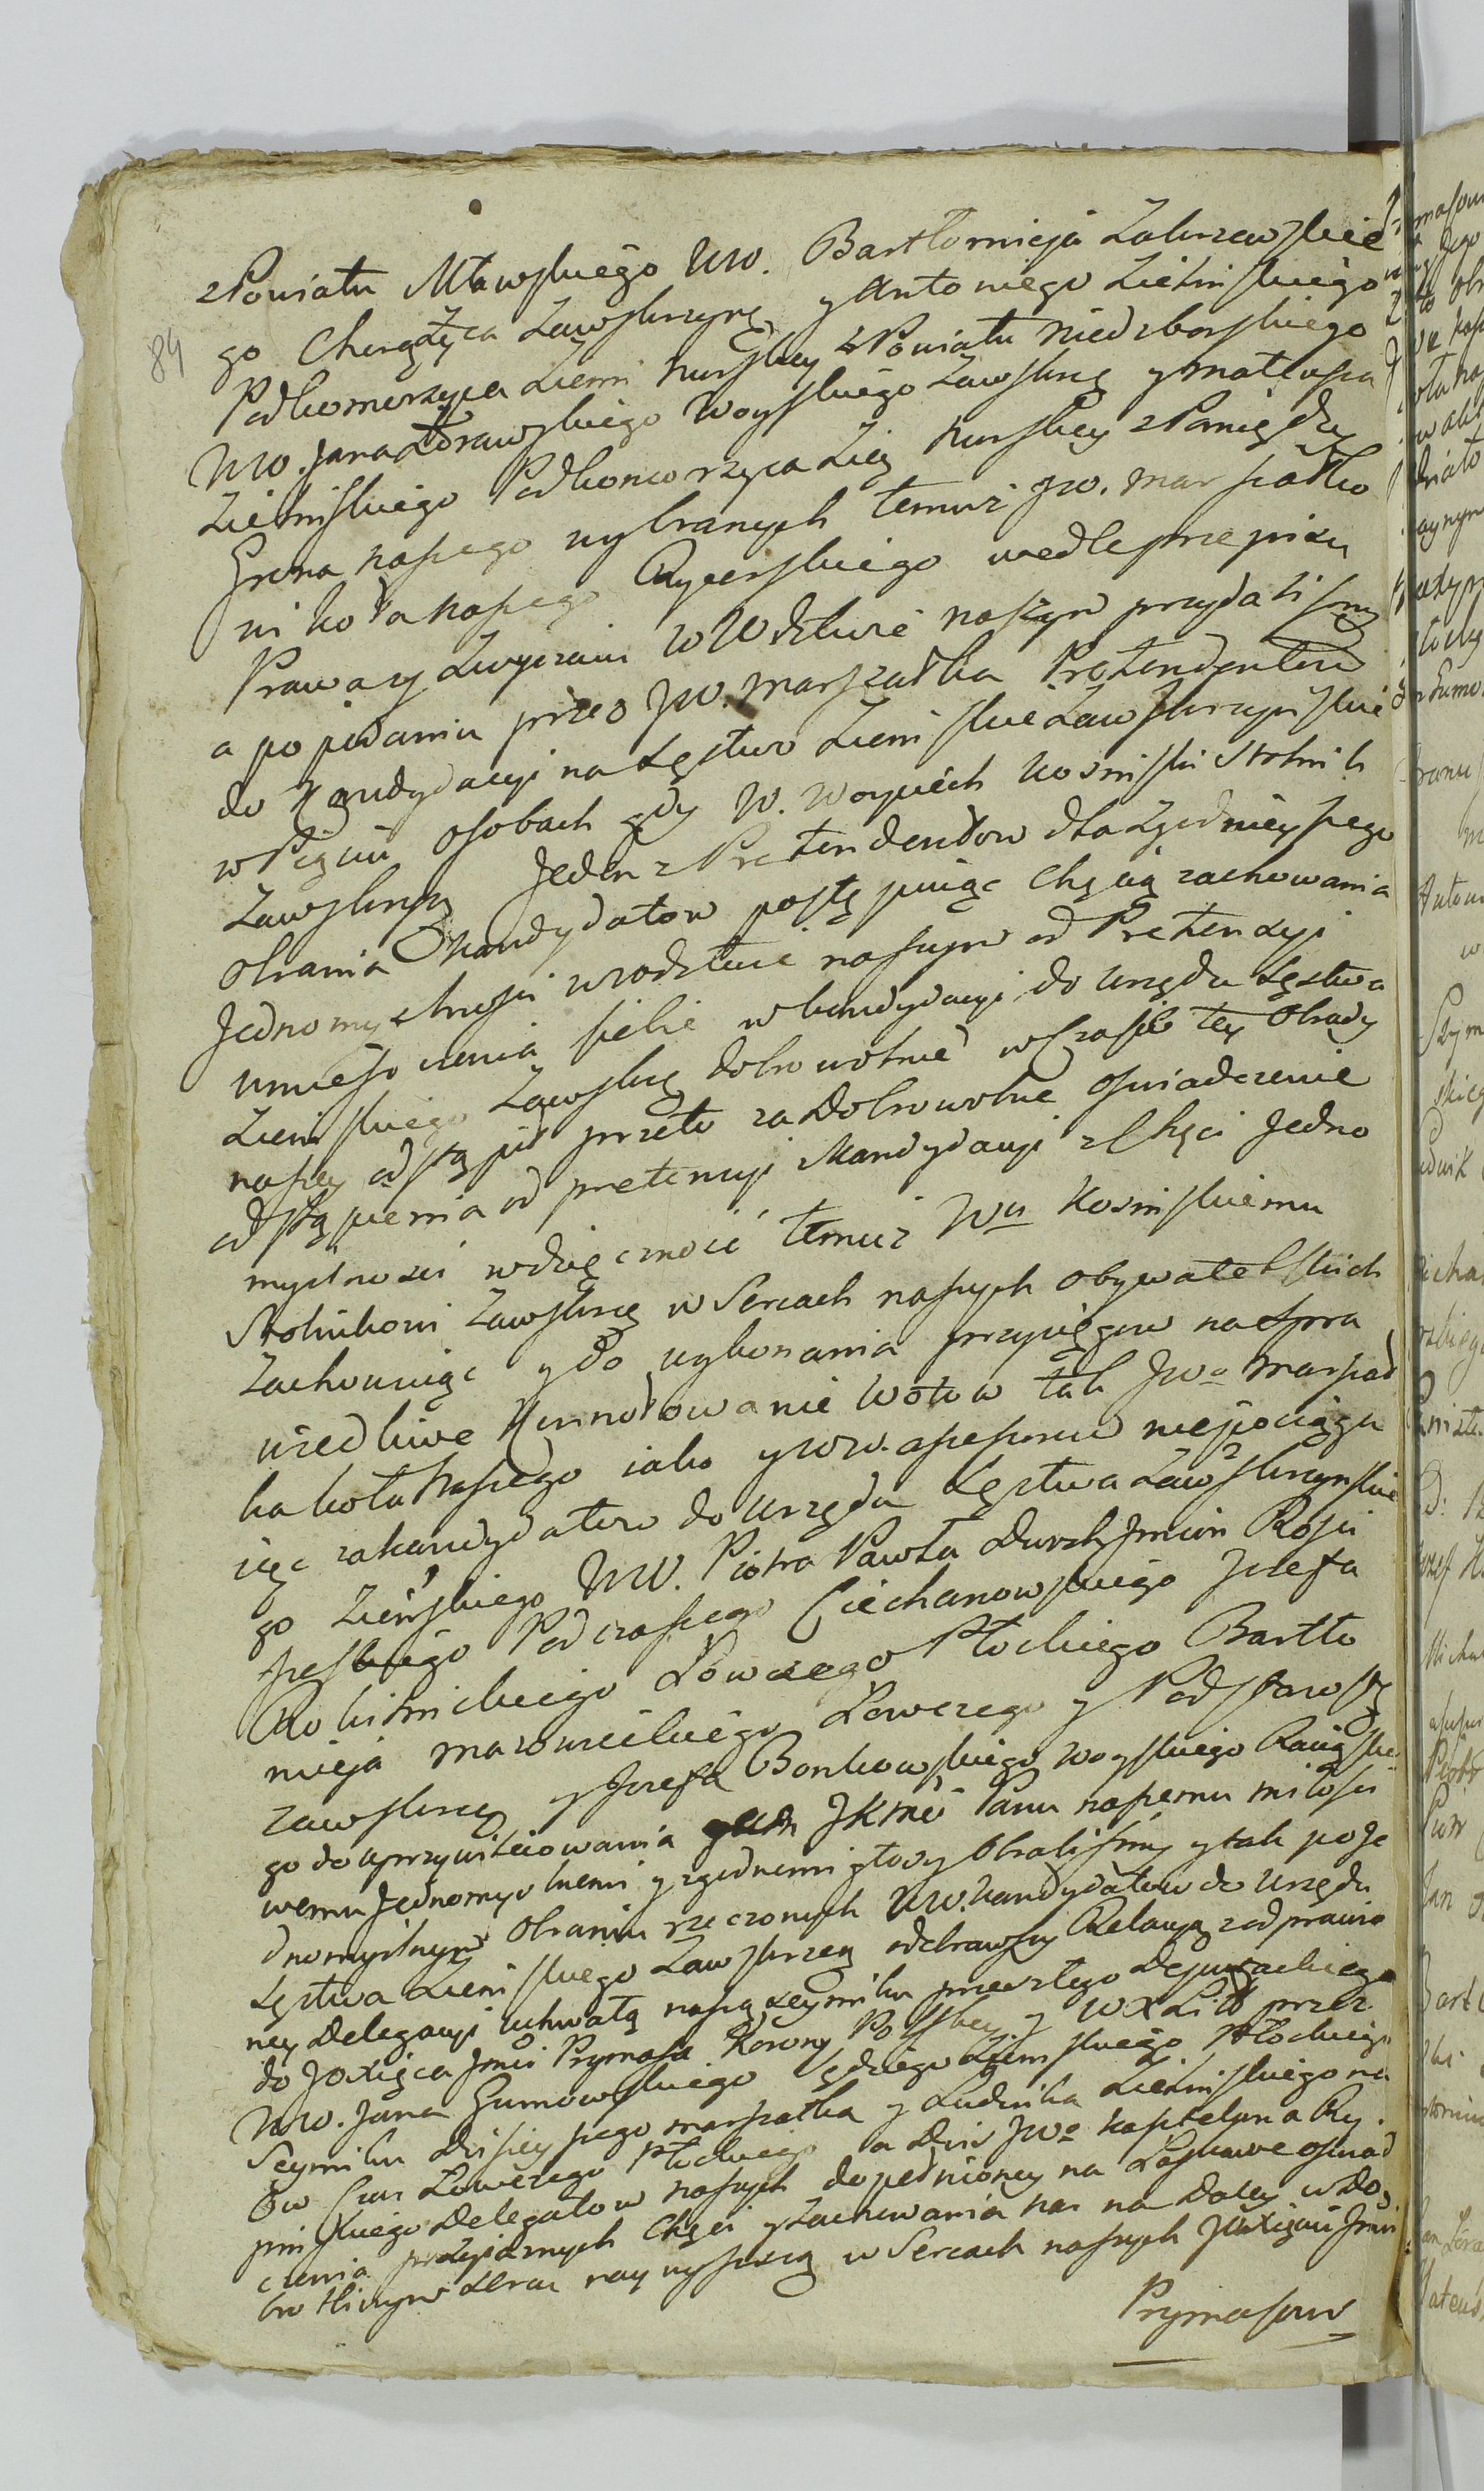 84
z Powiatu Mławskiego UW. Bartłomieja Zaborowskie
go Chorążyca Zawskrzyn: y Antoniego Zielinskiego
Podkomorzyca Ziemi Nurskiey z Powiatu Niedzborskiego
UW. Jana Zorawskiego Woyskiego Zawskrz. y Mateusza
Zielinskiego Podkomorzyca Zie. Nurskiey z Pomiędzy
Grona naszego wybranych temuż JW. Marszałko
wi Koła naszego Rycerskiego wedle przepisu
Prawa y Zwyczaiu w Wdztwie naszym przydalismy
a po podaniu przez JW. Marszałka Pretendentów
do Kandydacyi na Sęstwo Ziemskie Zawskrzynskie
w Pięciu osobach gdy W. Woyciech Kosmiski Stolnik
Zawskrzy. Jeden z Pretendentow dla Zgodnieyszego
obrania Kandydatow postępuiąc chęcią zachowania
Jednomyslnosci w Wodztwie naszym od Pretensyi
umieszczenia siebie w kandydacyi do Urzędu Sęstwa
Ziemskiego Zawskrz. dobrowolnie w Czasie tey Obrady
naszey odstąpił przeto za Dobrowolne oswiadczenie
odstąpienia od pretensyi Kandydacyi z Chęci Jedno
myslnosci wdzięcznosć temuż Wu Kosmiskiemu
Stolnikowi Zawskrz. w Sercach naszych obywatelskich
Zachowuiąc y do wykonania przysięgow na spra
wiedliwe Konnotowanie Wotow tak JWo Marszał
ka koła Naszego iako y WW. assessorow niepociąga
iąc za kandydatow do Urzędu Sęstwa Zawskrzynskie
go Ziemskiego UW. Piotra Pawła Dwoch Jmion Rosci
szewskiego Podczaszego Ciechanowskiego Jozefa
Rokitnickiego Łowczego Płockiego Bartło
mieja Mazowieckiego Łowczego y Podstarosz.
Zawskrz. y Jozefa Bonkowskiego Woyskiego Raciąskie
go do uprzywileiowania JKMci Panu naszemu miłosci
wemu Jednomyslnemi y zgodnemi głosy obralismy y tak po Je
dnomyslnym Obraniu rzeczonych UW. Kandydatow do Urzędu
Sęstwa Ziemskiego Zawskrzeg. odebrawszy Relacyą z odprawio
ney Delegacyi Uchwałą naszą Seymiku przeszłego Deputackiego
do JOXięcia Jmci Prymasa Korony Polskiey y WXLitt przez
UW. Jana Gumowskiego Sędziego Ziemskiego Płockiego
Seymiku dzisieyszego Marszałka y Ludwika Zielinskiego na
ow Czas Łowczego Płockiego a dzis JWo Kasztelana Ry
pinskiego Delegatow naszych dopełnioney na Łaskawe oswiad
czenia przyiaznych Chęci y zachowania nas na daley w Do
brotliwym Sercu naywyższą w Sercach naszych JOXięciu Jmci
Prymasowi